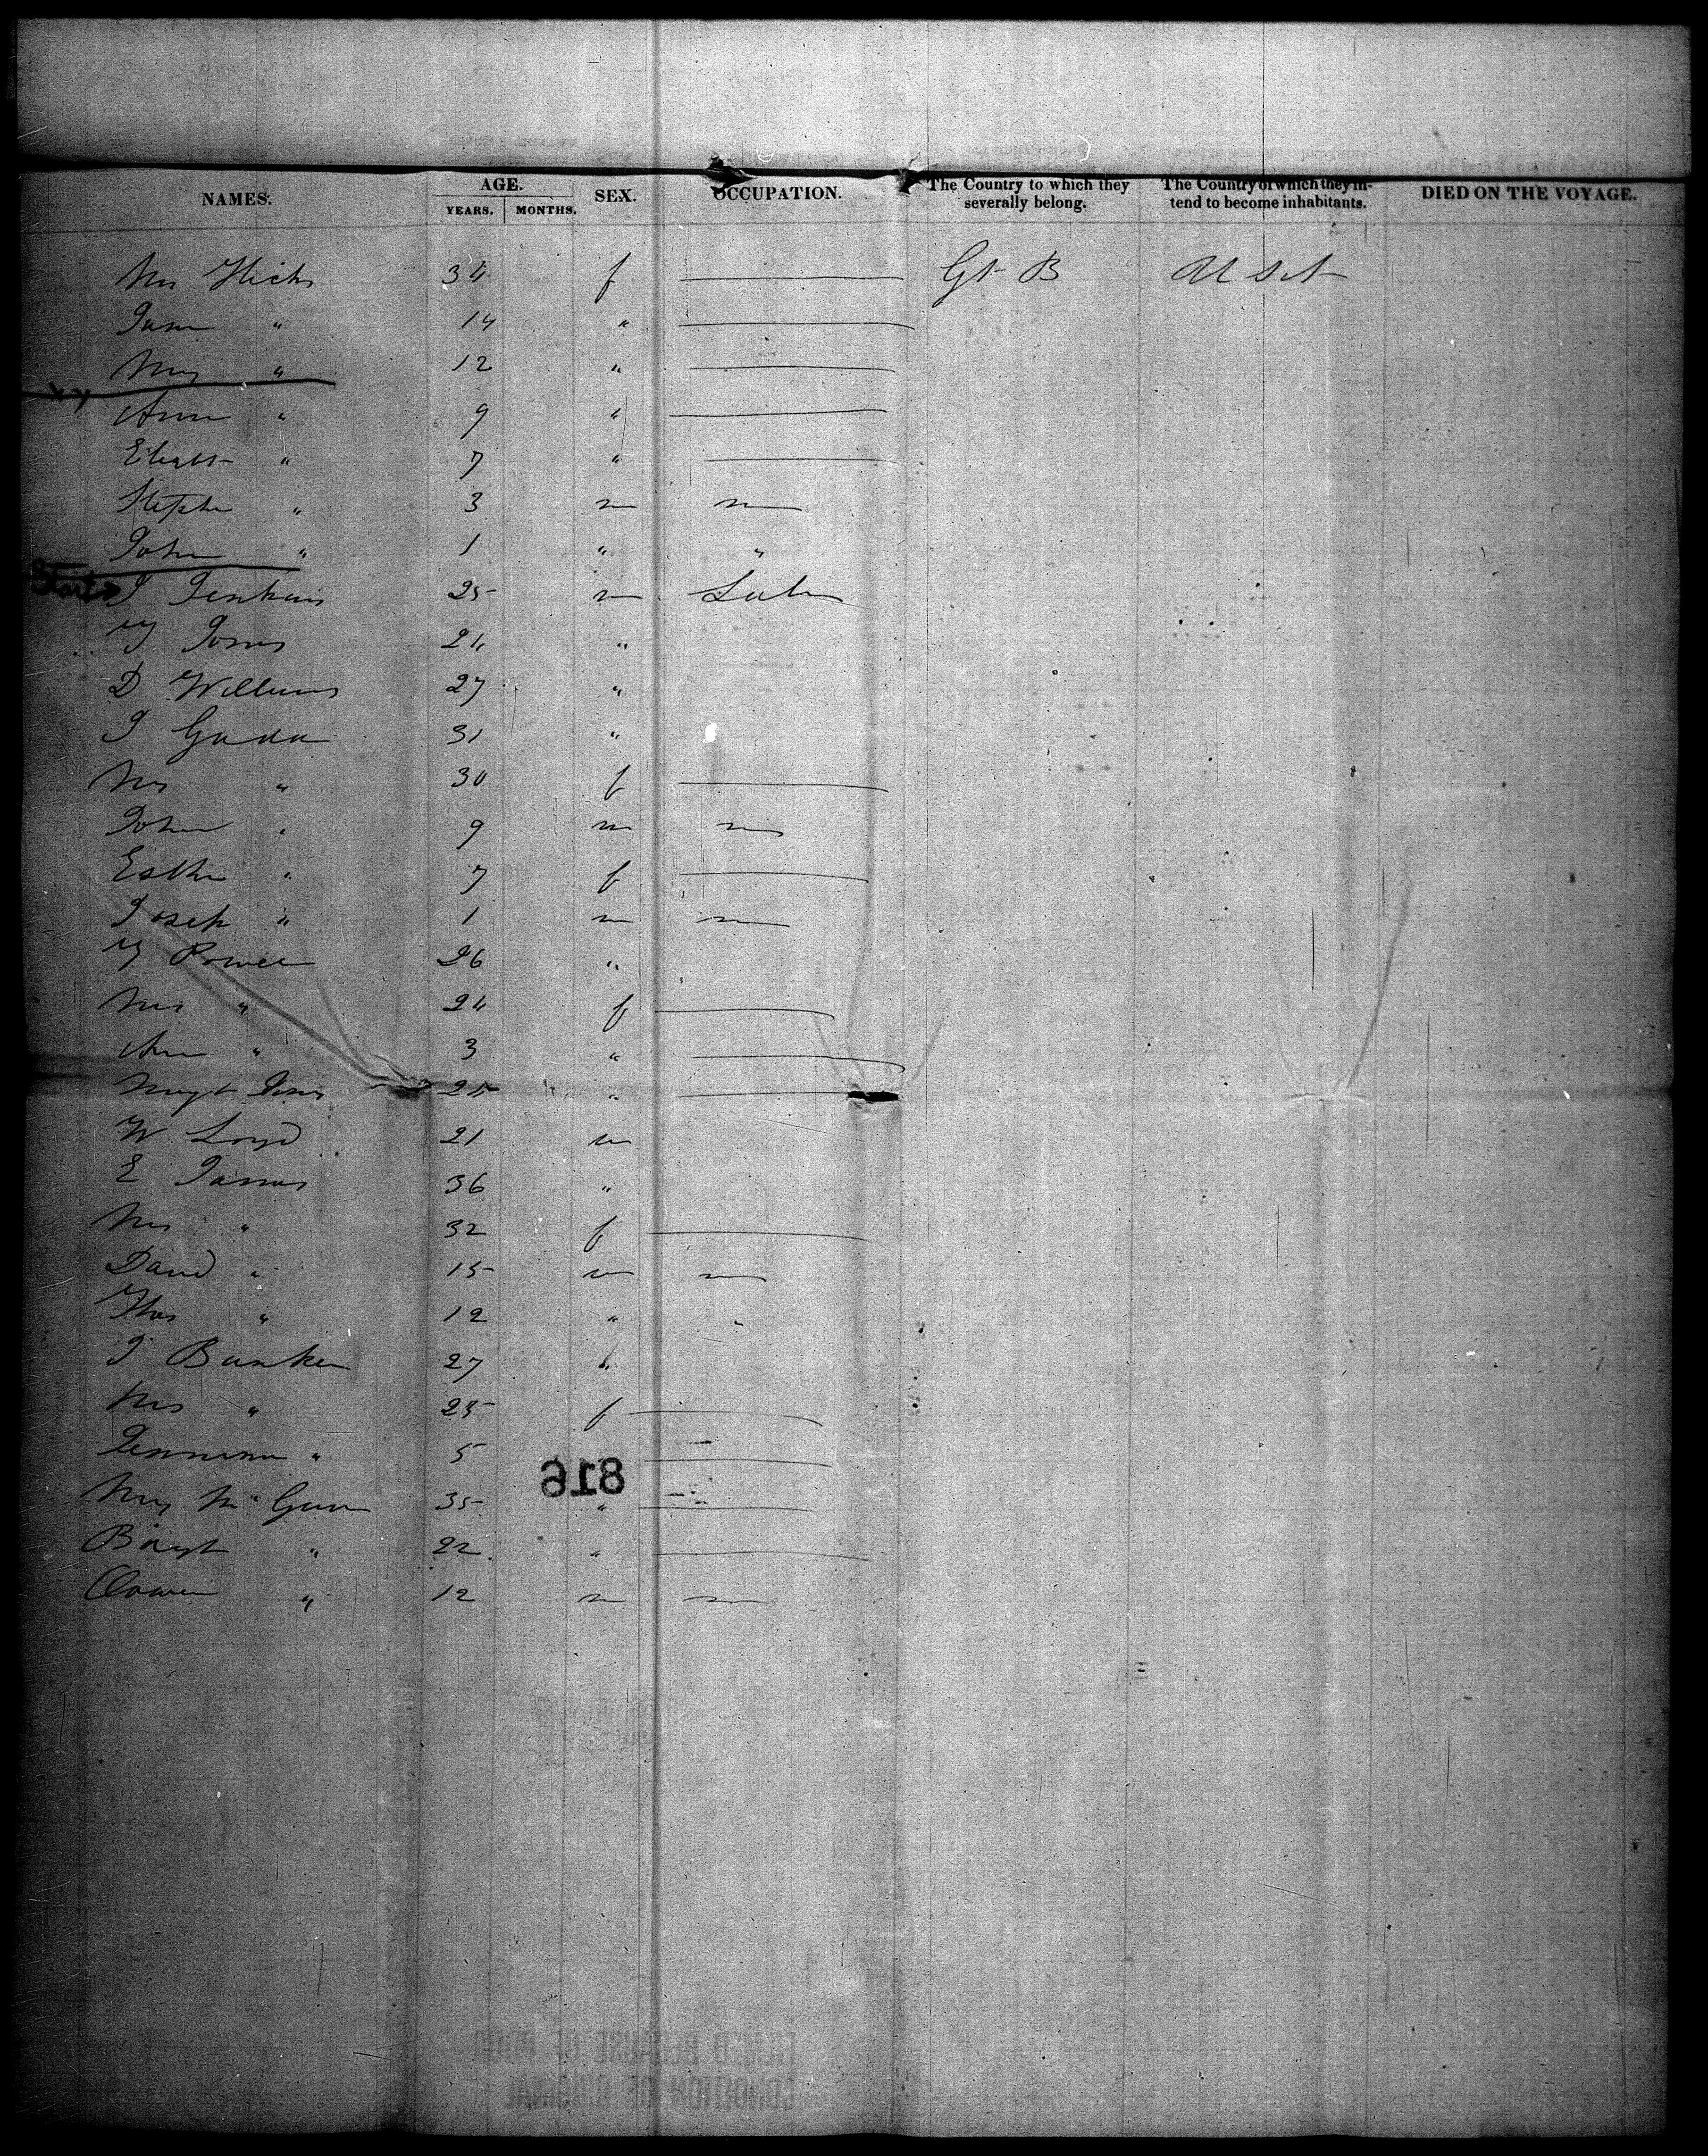 NAMES. AGE. YEARS. MONTHS. SEX. OCCUPATION. The Country to which they severally belong. The Country of which they intend to become inhabitants. DIED ON THE VOYAGE.
Mrs Hicks 34 f Gt B U St
Jane " 14 "
Mary " 12 "
Ann " 9 "
Elizabt " 7 "
Stephn " 3 m
John " 1 " "
Start J Jenkins 25 m Labr
T Jones 24 "
D Williams 27 "
J 31 "
Mrs " 30 f
John " 9 m
Esther " 7 f
Joseph " 1 m
T Powell 26 "
Mrs " 24 f
Ann " 3 "
Margt Jones 25 "
W Loyd 21 m
E James 36 "
Mrs " 32 f
David " 15 m
Thos " 12 " "
J Bunker 27 "
Mrs " 25 f
" 5
816
Mary Mc 35 "
" 22 "
Owen " 12 m
FILMED BECAUSE OF POOR
CONDITION OF ORIGINAL